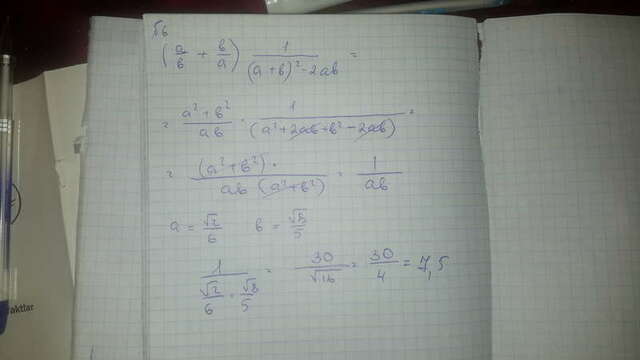 Б6
(a/b + b/a) 1/((a+b)² - 2ab) =
= (a² + b²)/(ab) · 1/((a² + 2ab + b² - 2ab)) =
= ((a² + b²) ·)/(ab (a² + b²)) = 1/(ab)
a = √2/6   b = √8/5
1/(√2/6 · √8/5) = 30/√16 = 30/4 = 7,5
raktlar